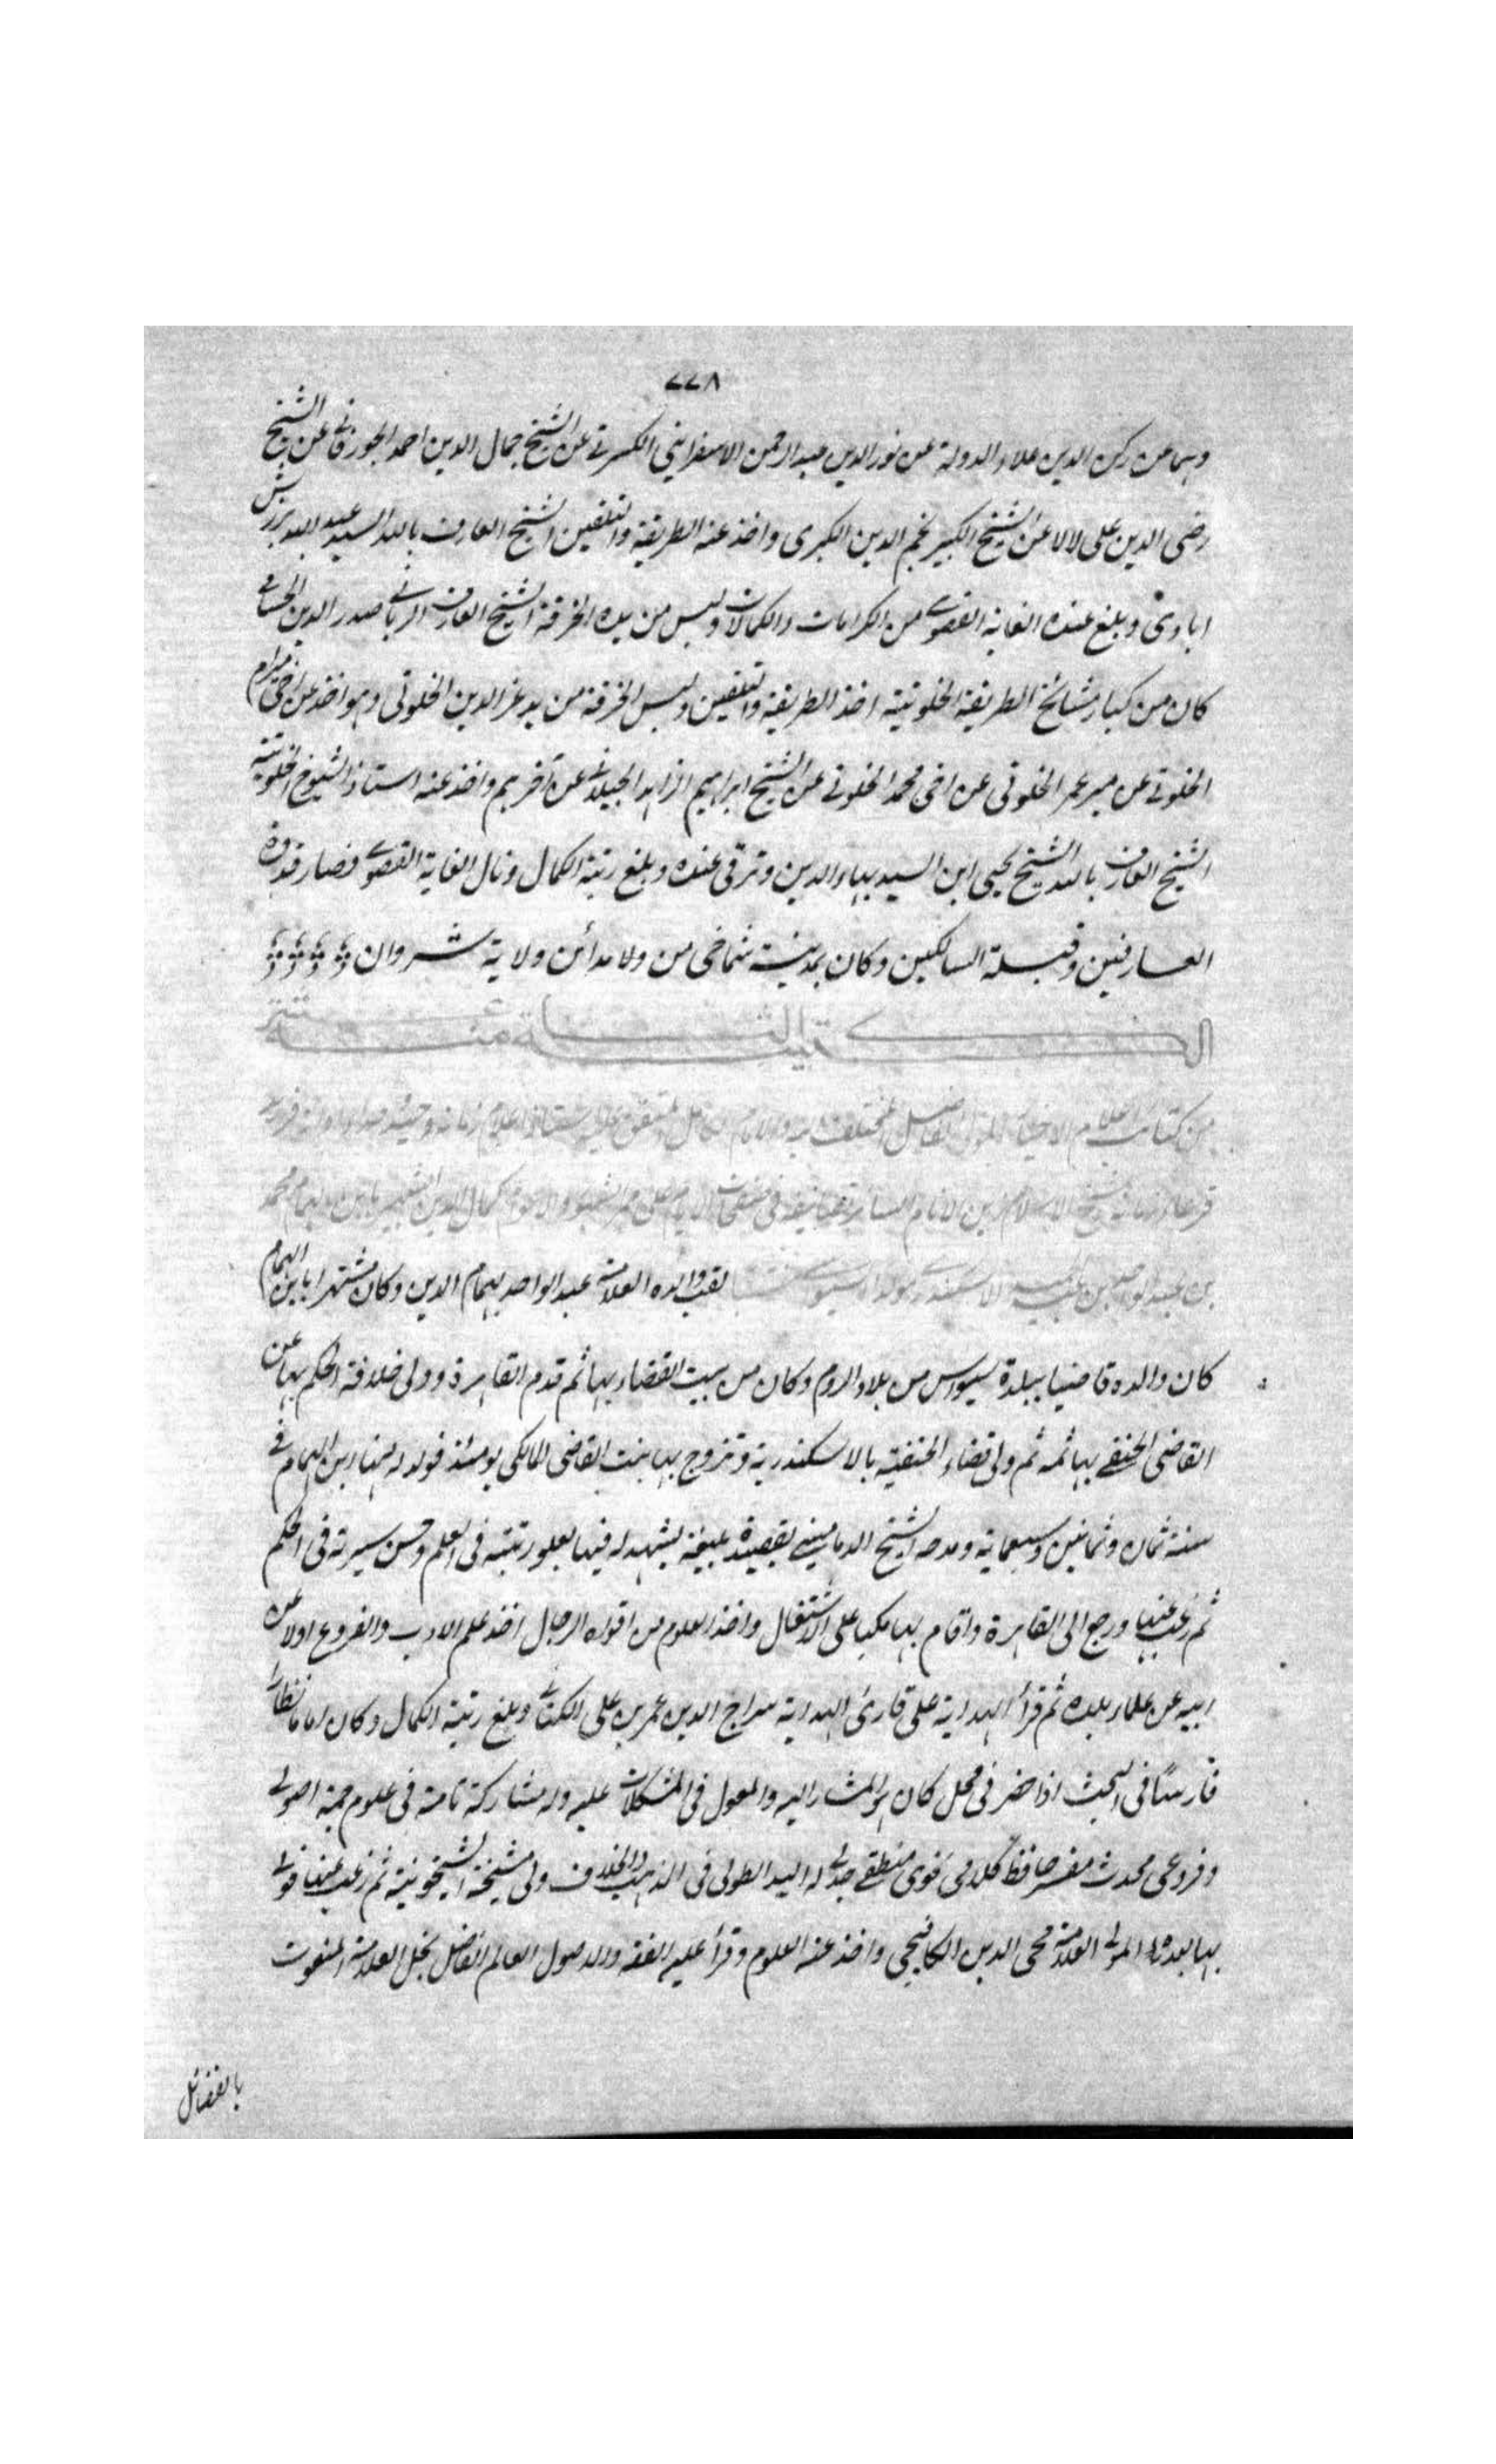 ٧٧٨
وهما عن ركن الدين علاء الدولة عن نور الدين عبد الرحمن الاسفرايني الكسرقي عن الشيخ جمال الدين احمد الجورفاني عن الشيخ
رضى الدين على لالا عن الشيخ الكبير نجم الدين الكبرى واخذ عنه الطريقة والتلقين الشيخ العارف بالله السيد عبد الله برزش
ابادى وبلغ عنده الغاية القصوى من الكرامات والكمالات ولبس من يده الخرقة الشيخ العارف الربانى صدر الدين
كان من كبار مشائخ الطريقة الخلوتية اخذ الطريقة والتلقين ولبس الخرقة من يد عز الدين الخلوتى وهو اخذ عن اخى ميرام
الخلوتى عن مير عمر الخلوتى عن اخى محمد الخلوتى عن الشيخ ابراهيم الزاهد الجيلانى عن آخرهم واخذ عنه استاذ الشيوخ الخلوتية
الشيخ العارف بالله الشيخ يحيى ابن السيد بهاء الدين وترقى عنده وبلغ رتبة الكمال ونال الغاية القصوى فصار قدوة
العارفين وقبلة السالكين وكان بمدينة شماخى من ولا مدائن ولاية شروان
الكتيبة الثامنة عشر
من كتائب اعلام الاخيار المولى الفاضل
شيخ الاسلام زين الانام كمال الدين الشهير بابن الهمام محمد
بن عبد الواحد بن عبد الحميد الاسكندرى مولدا السيواسى لقب والده العلامة عبد الواحد بهمام الدين وكان مشتهرا بابن الهمام
كان والده قاضيا ببلدة سيواس من بلاد الروم وكان من بيت القضاء بها ثم قدم القاهرة وولى خلافة الحكم بها عن
القاضى الحنفى بها ثمه ثم ولى قضاء الحنفية بالاسكندرية وتزوج بها بنت القاضى المالكى يومئذ فولد له هنا ابن الهمام فى
سنة ثمان وثمانين وسبعماية ومدحه الشيخ الدمامينى بقصيدة بليغة يشهد له فيها بعلو رتبته فى العلم وحسن سيرته فى الحكم
ثم رغب عنها ورجع الى القاهرة واقام بها مكبا على الاشتغال واخذ العلوم من افواه الرجال اخذ علم الادب والفروع اولا عن
ابيه عن علماء بلده ثم قرأ الهداية على قارئ الهداية سراج الدين عمر بن على الكنانى وبلغ رتبة الكمال وكان اماما نظارا
فارسًا فى البحث اذا حضر فى محل كان هو المشار اليه والمعول فى المشكلات عليه وله مشاركة تامة فى علوم جمة اصولى
وفروعى محدث مفسر حافظ كلامى نحوى منطقى جدلى له اليد الطولى فى المذهب والخلاف ولى مشيخة الشيخونية ثم رغب عنها فولى
بها بعده المولى العلامة محى الدين الكافيجى واخذ عنه العلوم وقرأ عليه الفقه والاصول العالم الفاضل نجل العلامة المنعوت
بالفضائل